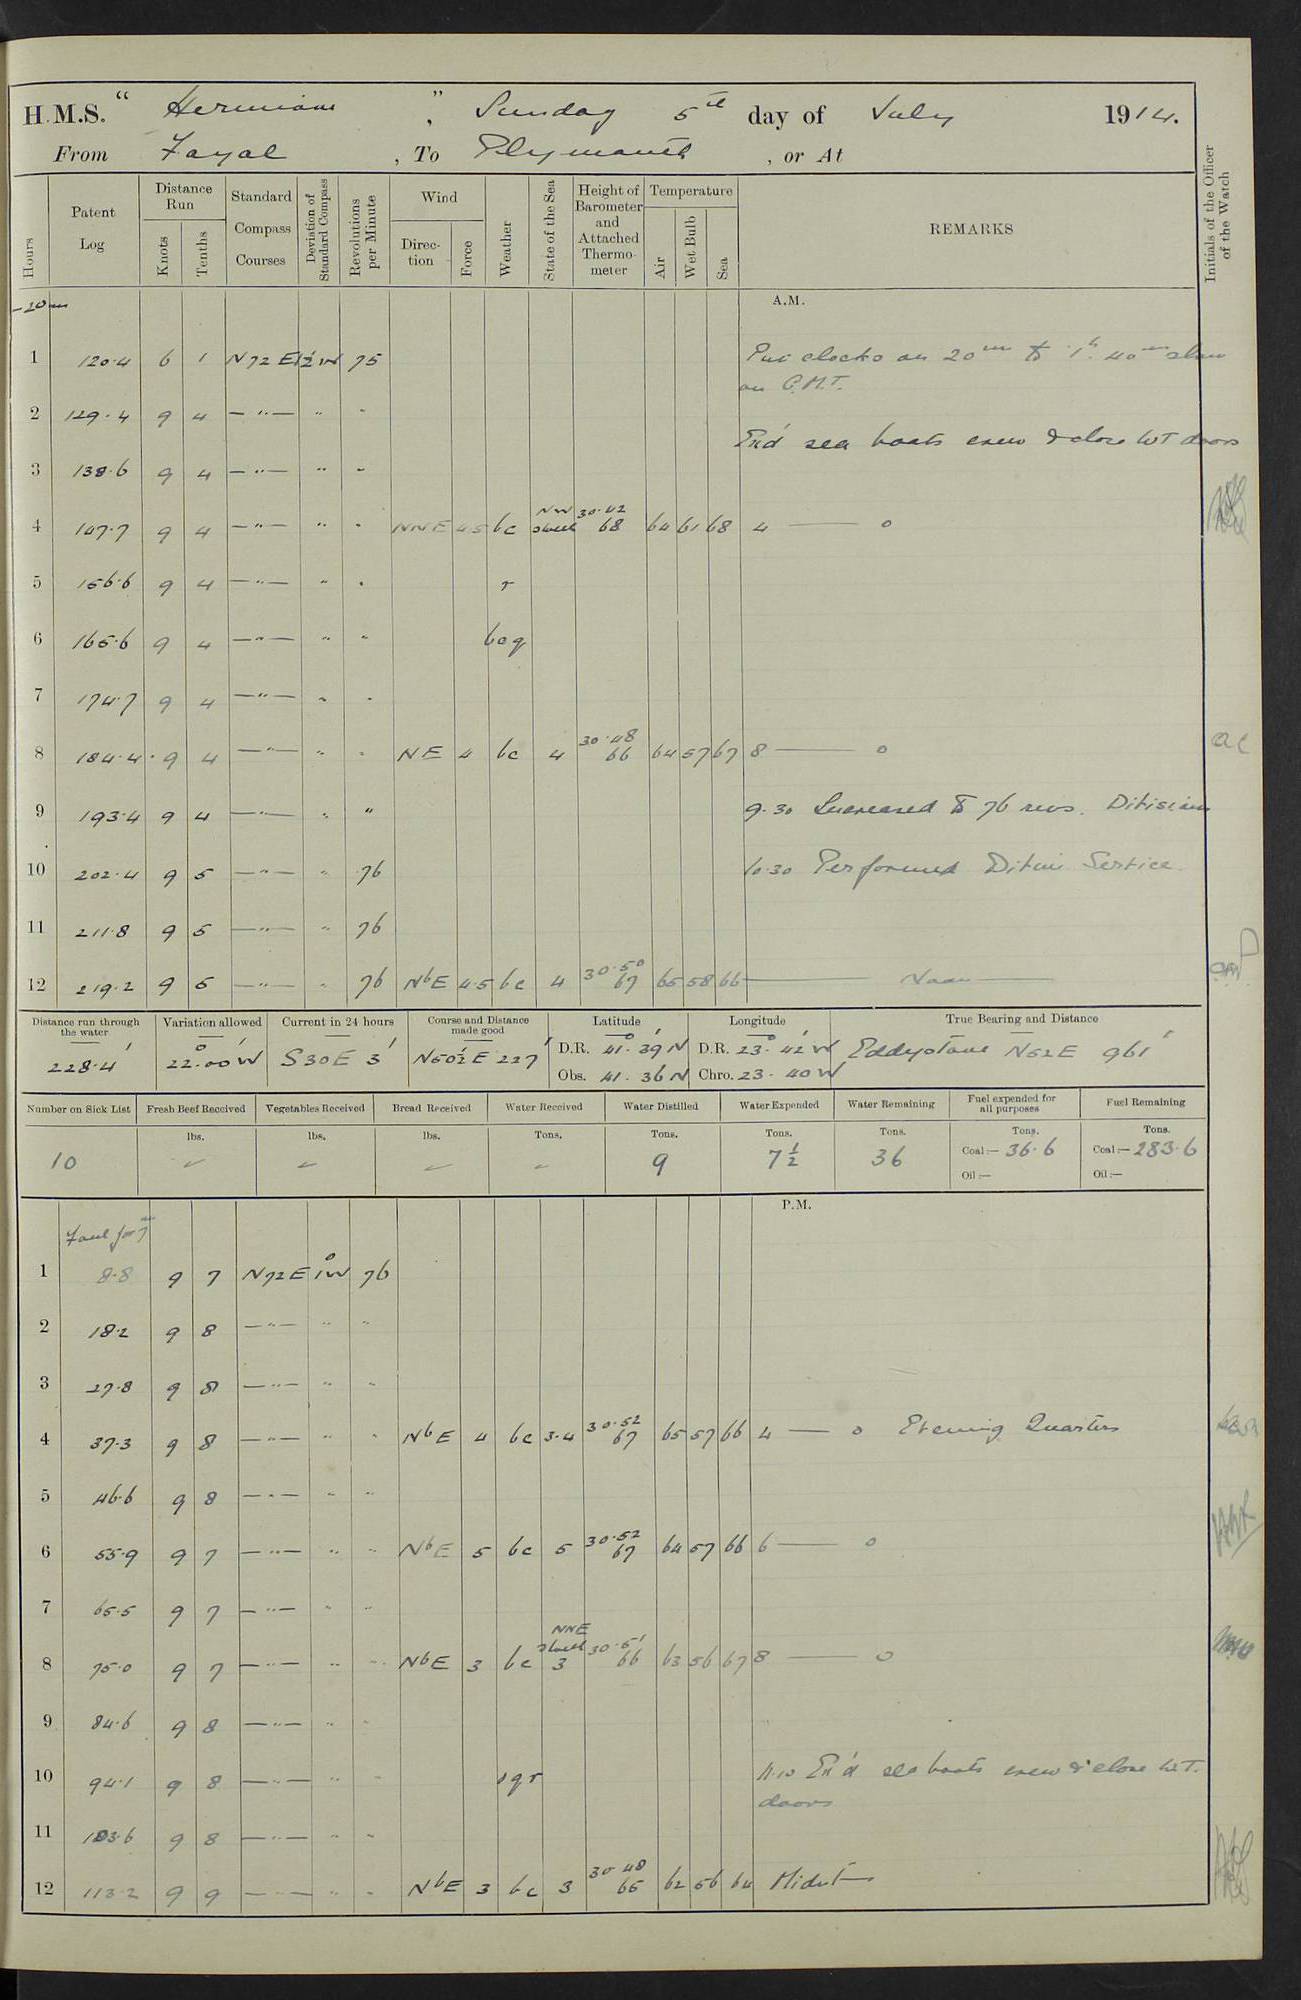 H.M.S. " Hermione ", Sunday 5th day of July 1914.
From Fayal, To Plymouth, or At
Hours
Patent Log
Distance Run
Knots
Tenths
Standard Compass Courses
Deviation of Standard Compass
Revolutions per Minute
Wind
Direction
Force
Weather
State of the Sea
Height of Barometer and Attached Thermometer
Temperature
Air
Wet Bulb
Sea
REMARKS
Initials of the Officer of the Watch
-20m
A.M.
1 120.4 6 1 N72E 1½W 75 Put clocks on 20m to 1h. 40m slow
on G.M.T.
2 129.4 9 4 —"— " "
Ex'd sea boats crew & close WT doors
3 138.6 9 4 —"— " "
4 147.7 9 4 —"— " " NNE 4.5 bc NW 30.42 68 64 61 68 4 — o
5 156.6 9 4 —"— " " r
6 165.6 9 4 —"— " " bcq
7 174.7 9 4 —"— " "
8 184.4 9 4 —"— " " NE 4 bc 4 30.48 66 64 57 67 8 — o
9 193.4 9 4 —"— " " 9.30 Increased to 76 revs. Divisions
10 202.4 9 5 —"— " 76 10.30 Performed Divine Service.
11 211.8 9 5 —"— " 76
12 219.2 9 5 —"— " 76 NbE 4.5 bc 4 30.50 67 65 58 66 — Noon —
Distance run through the water
Variation allowed
Current in 24 hours
Course and Distance made good
Latitude
Longitude
True Bearing and Distance
228.4' 22°.00'W S30E 3' N50½E 227' D.R. 41°.39'N D.R. 23°.42'W Eddystone N52E 961'
Obs. 41.36N Chro. 23.40W
Number on Sick List
Fresh Beef Received
Vegetables Received
Bread Received
Water Received
Water Distilled
Water Expended
Water Remaining
Fuel expended for all purposes
Fuel Remaining
lbs. lbs. lbs. Tons. Tons. Tons. Tons. Tons. Tons.
10 9 7½ 36 Coal:— 36.6 Coal:— 283.6
Oil:— Oil:—
P.M.
Foul for 7m
1 8.8 9 7 N72E 1°W 76
2 18.2 9 8 —"— " "
3 27.8 9 8 —"— " "
4 37.3 9 8 —"— " " NbE 4 bc 3.4 30.52 67 65 57 66 4 — o Evening Quarters
5 46.6 9 8 —"— " "
6 55.9 9 7 —"— " " NbE 5 bc 5 30.52 67 64 57 66 6 — o
7 65.5 9 7 —"— " "
8 75.0 9 7 —"— " " NbE 3 bc NNE 3 30.51 66 63 56 67 8 — o
9 84.6 9 8 —"— " "
10 94.1 9 8 —"— " " oqr 11.10 Ex'd sea boats crew & close W.T.
doors
11 103.6 9 8 —"— " "
12 113.2 9 9 —"— " " NbE 3 bc 3 30.48 65 62 56 64 Midnt